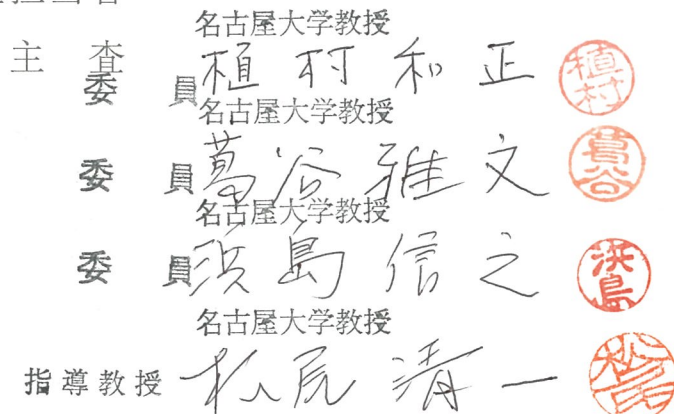 名古屋大学教授
主 査
委 員 植村和正 植村
名古屋大学教授
委 員 葛谷雅文 葛谷
名古屋大学教授
委 員 浜島信之 浜島
名古屋大学教授
指導教授 松尾清一